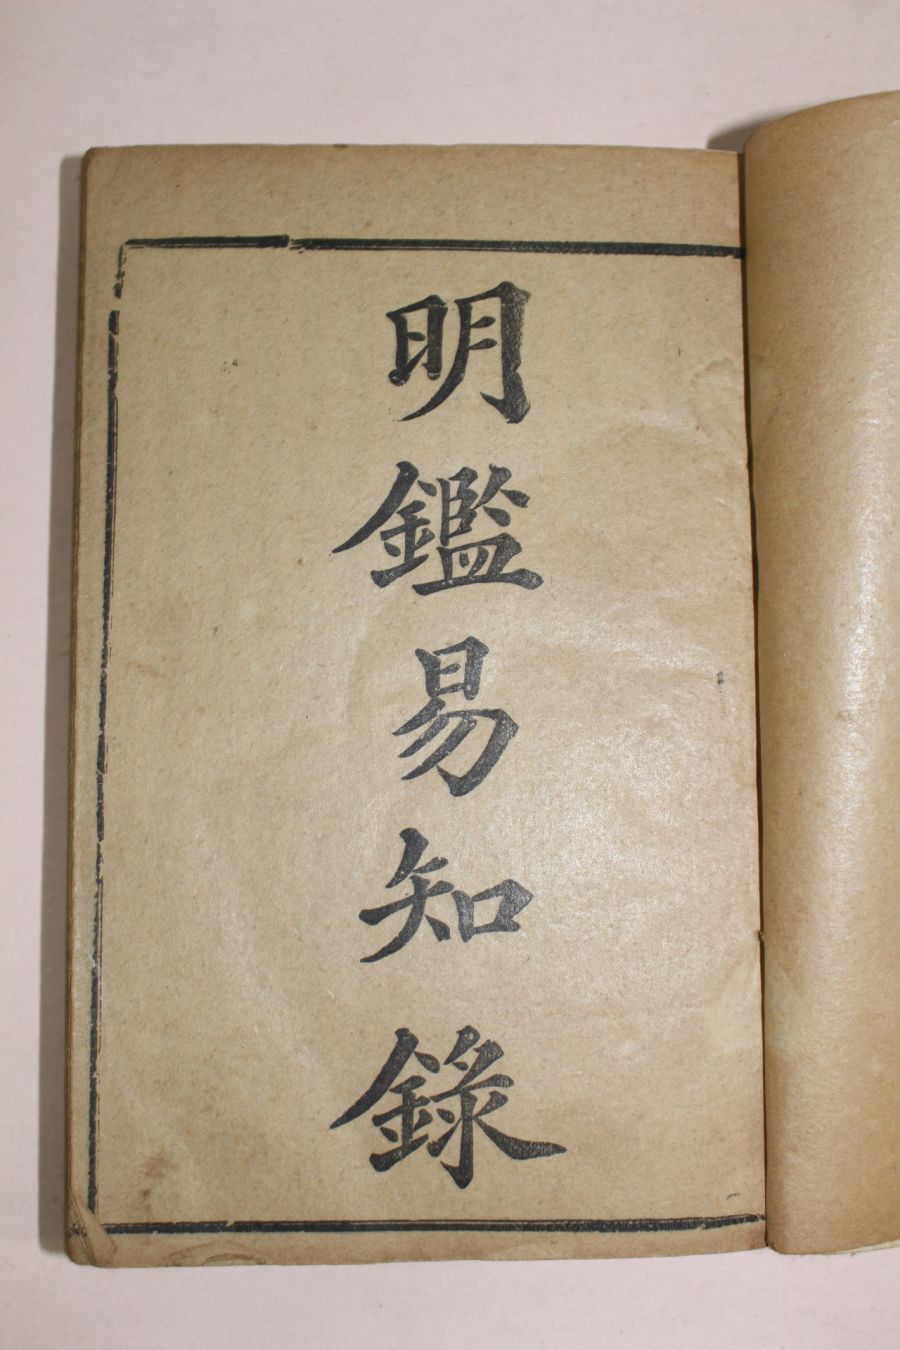 明鑑易知錄